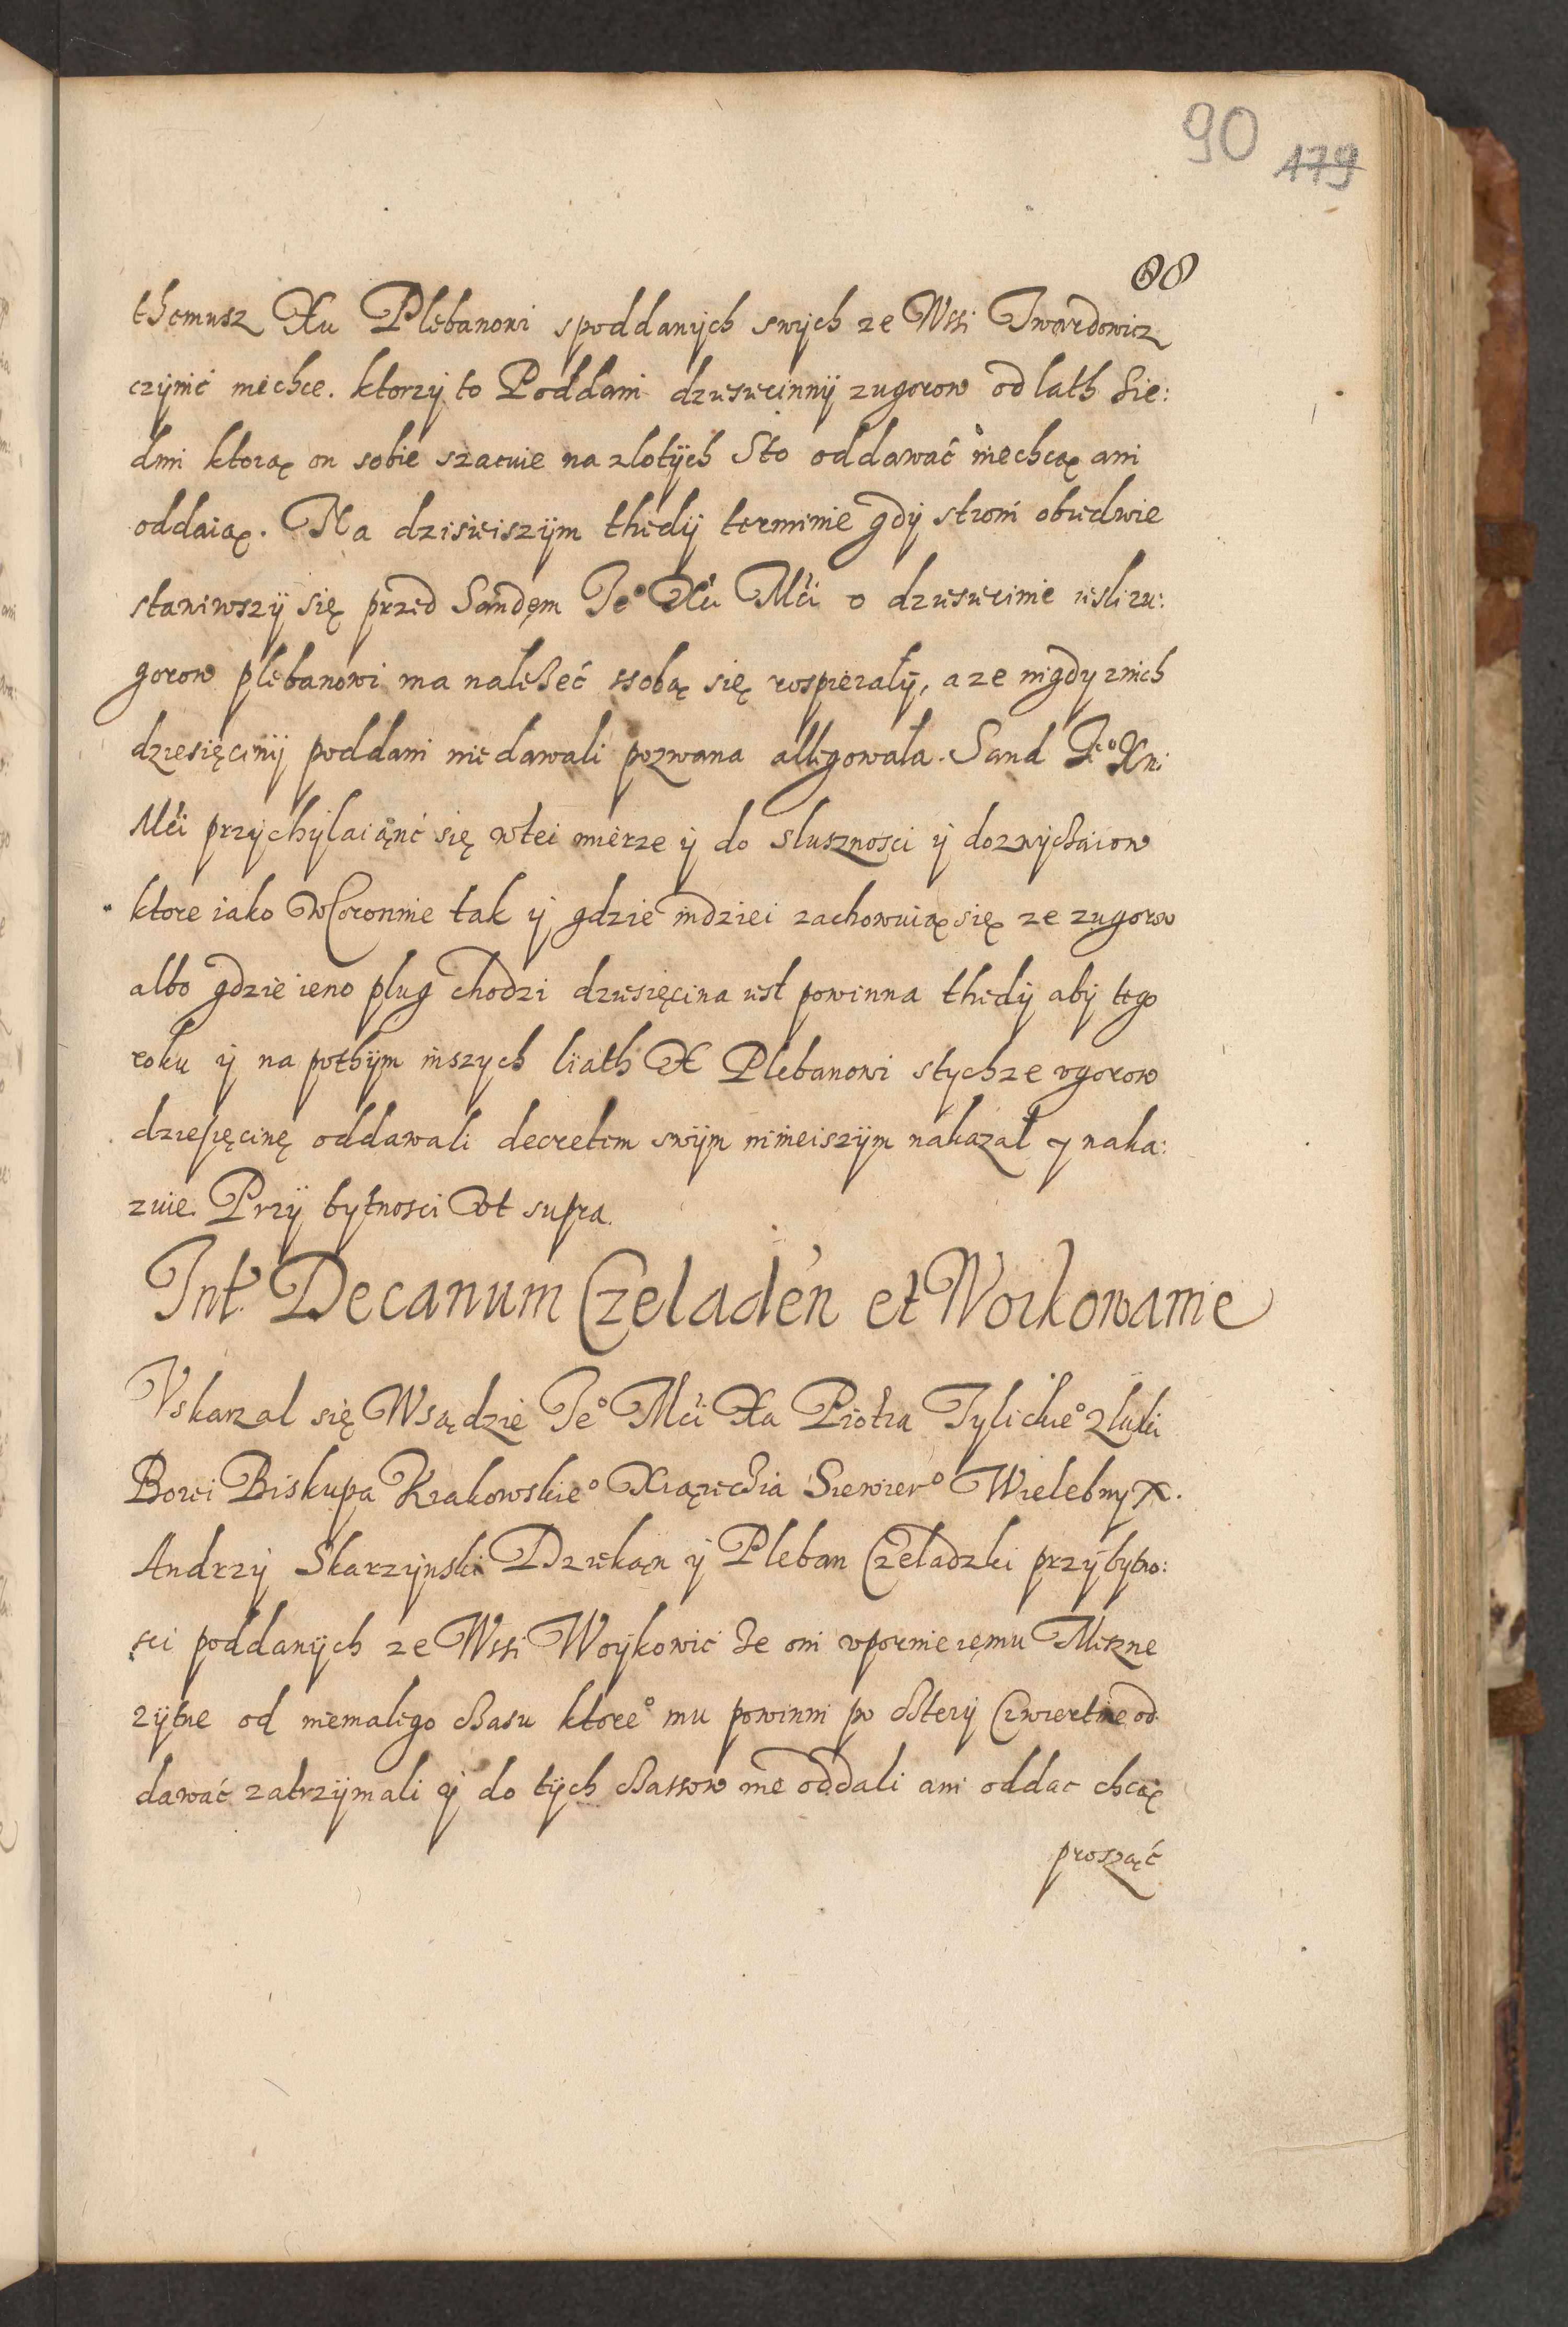 90 179
88
themusz Xu Plebanowi spoddanÿch swÿch ze Wssi Twardowicz
czÿnić niechce. ktorzÿ to Poddani dziesiecinnÿ zugorow od lath Sie:
dmi ktorą on sobie szacuie na zlotÿch Sto oddawać niechcą ani
oddaią. Na dzisieiszÿm thedÿ terminie gdÿ stroni obiedwie
stanewszÿ się przed Sandem Je° Xći Mći o dziesiecinie iesli zu:
gorow plebanowi ma naleźeć ssobą się rospierałÿ, a ze nigdy znich
dziesięcinÿ poddani nie dawali pozwana alligowała. Sand Je° Xni
Mći przÿchÿlaiąnć się wtei mierze ÿ do slusznosci ÿ dozwÿczaiow
ktore iako wCoronnie tak ÿ gdzie indziei zachowuią się ze zugorow
albo gdzie ieno plug chodzi dziesięcina iest powinna thedÿ abÿ tego
roku ÿ na pothÿm inszych liath X Plebanowi stÿchze vgorow
dziesięcinę oddawali decretem swÿm ninieiszÿm nakazał y naka:
zuie. Przÿ bytnosci vt supra.
Int. Decanum Czeladen et Woikowanie
Vskarzal się Wsądzie Je° Mći Xa Piotra Tylickie° zluki
Bozei Biskupa Krakowskie° Xiązęcia Siewier° Wielebny X.
Andrzÿ Skarzynski Dziekan ÿ Pleban Czeladzki przÿbytno:
sci poddanÿch ze Wssi Woÿkowić że oni vpornie iemu Meszne
zÿtne od niemalego czasu ktore° mu powinni po cztery Czwiertnie od
dawać zatrzÿmali ÿ do tÿch czassow nie oddali ani oddac chcą
prosząć